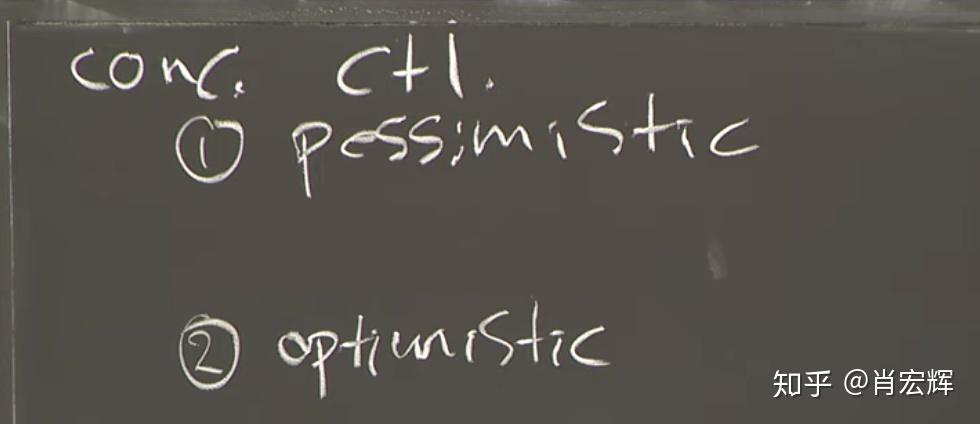 conc. ctl.
① pessimistic
② optimistic
知乎 @肖宏辉